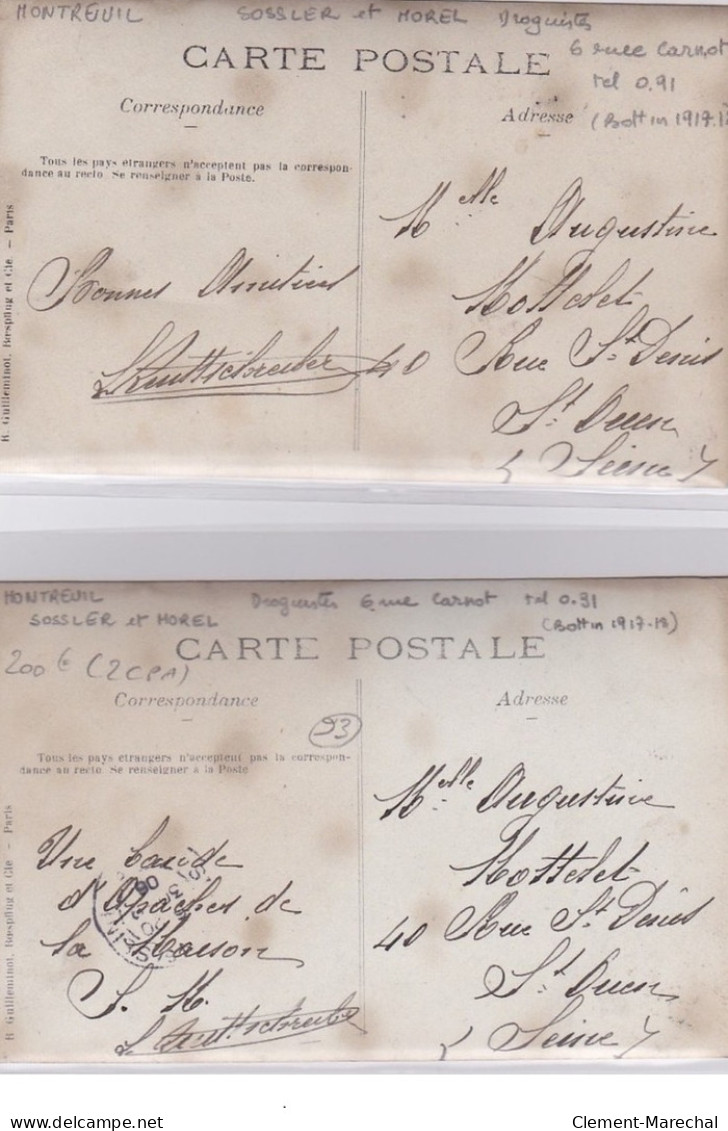 MONTREUIL SOSSLER et MOREL Droguistes
6 rue Carnot
tel 0.91
(Bottin 1917.18
CARTE POSTALE
Correspondance
Adresse
Tous les pays étrangers n'acceptent pas la correspon-
dance au recto Se renseigner à la Poste.
R. Guilleminot, Bœspflug et Cie. — Paris
Melle Augustine
Mottelet
40 Rue St Denis
St Ouen
(Seine)
Bonnes Amitiés
MONTREUIL Droguistes 6 rue Carnot tel 0.91
SOSSLER et MOREL (Bottin 1917-18)
200€ (2CPA)
CARTE POSTALE
Correspondance
Adresse
93
Tous les pays étrangers n'acceptent pas la correspon-
dance au recto Se renseigner à la Poste
R Guilleminot, Bœspflug et Cie — Paris
Melle Augustine
Mottelet
40 Rue St Denis
St Ouen
(Seine)
Une bande
d'Apaches de
la Maison
S. M.
Clement-Marechal